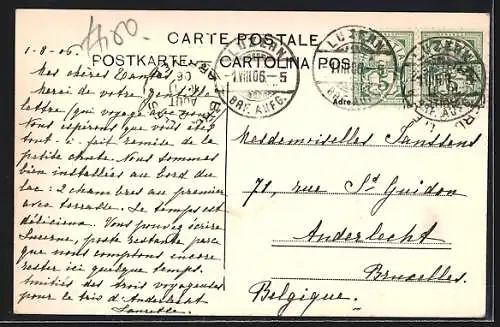 CARTE POSTALE
POSTKARTE. CARTOLINA POS
1-8-06.
Mes chères
Merci de votre gentille
lettre (qui voyage avec nous)
Nous espérons que vous êtes
tout à fait remise de la
petite chute. Nous sommes
bien installées au bord du
lac: 2 chambres au premier
avec terrasse. Le temps est
délicieux. Vous pouvez écrire
Lucerne, poste restante parce
que nous comptons encore
rester ici quelque temps.
Amitiés des trois voyageuses
pour le trio d'Anderlecht
LUZERN
1.VIII.06.-5
BRF. AUFG.
LUZERN
1.VIII.06.-5
BRF. AUFG.
LUZERN
BRF. AUFG.
Mesdemoiselles Janssens
71, rue St Guidon
Anderlecht
Bruxelles.
Belgique.